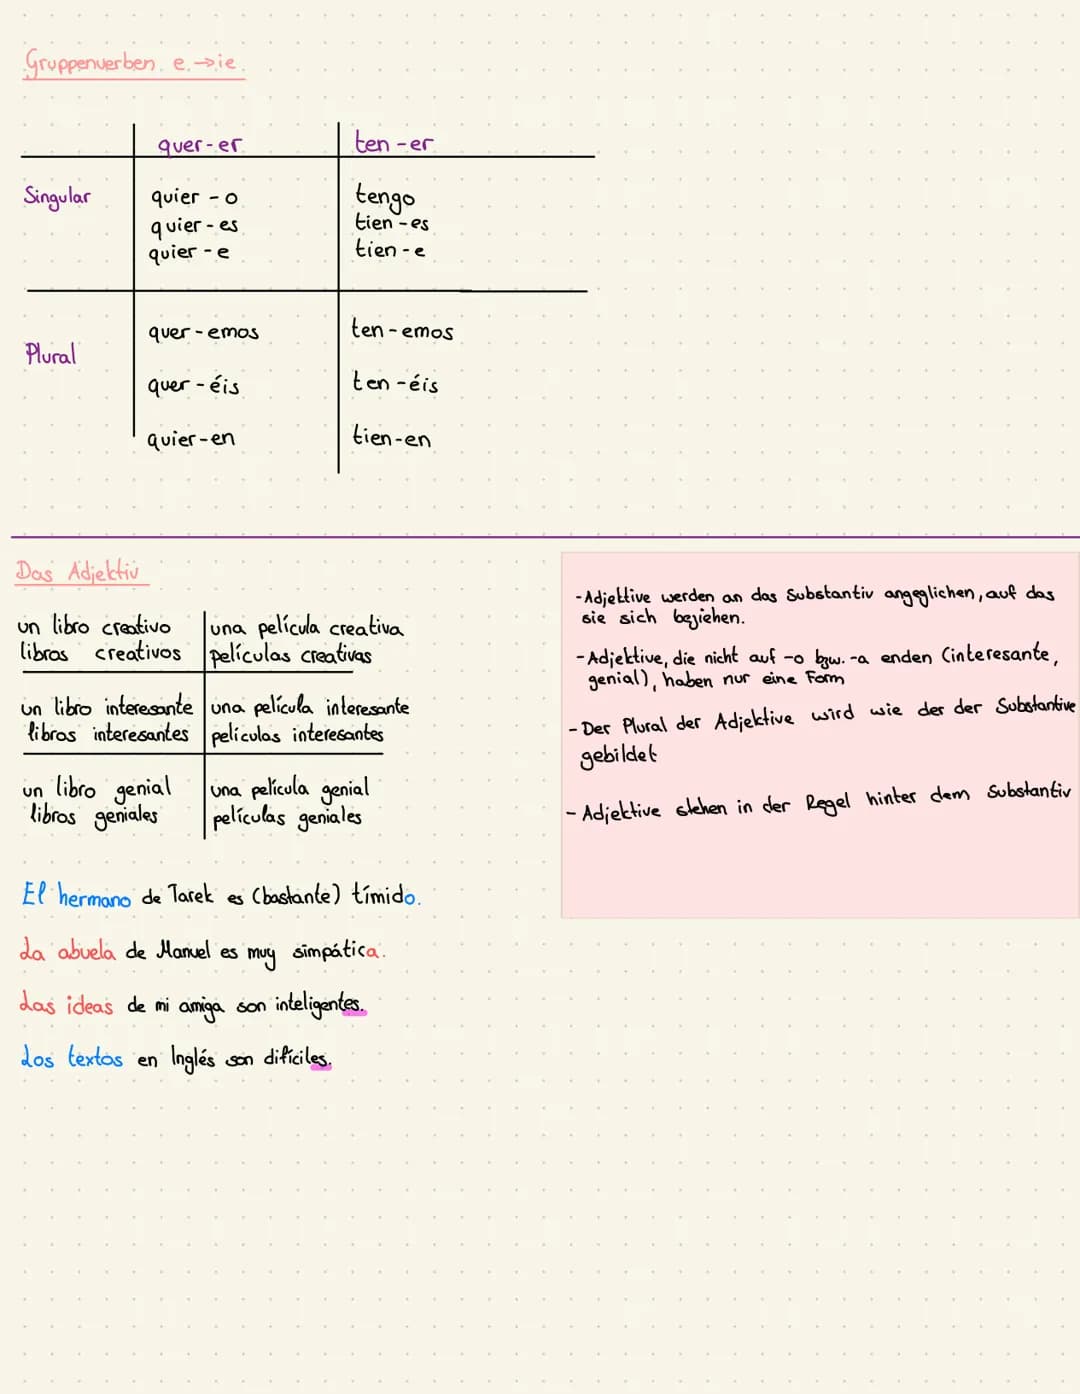 Gruppenverben e→ie
quer-er ten-er
Singular quier-o tengo
quier-es tien-es
quier-e tien-e
quer-emos ten-emos
Plural
quer-éis ten-éis
quier-en tien-en
Das Adjektiv
un libro creativo una película creativa
libros creativos películas creativas
un libro interesante una película interesante
libros interesantes películas interesantes
un libro genial una película genial
libros geniales películas geniales
El hermano de Tarek es (bastante) tímido.
La abuela de Manuel es muy simpática.
Las ideas de mi amiga son inteligentes.
Los textos en Inglés son difíciles.
-Adjektive werden an das Substantiv angeglichen, auf das
sie sich beziehen.
-Adjektive, die nicht auf -o bzw. -a enden (interesante,
genial), haben nur eine Form
-Der Plural der Adjektive wird wie der der Substantive
gebildet
-Adjektive stehen in der Regel hinter dem Substantiv